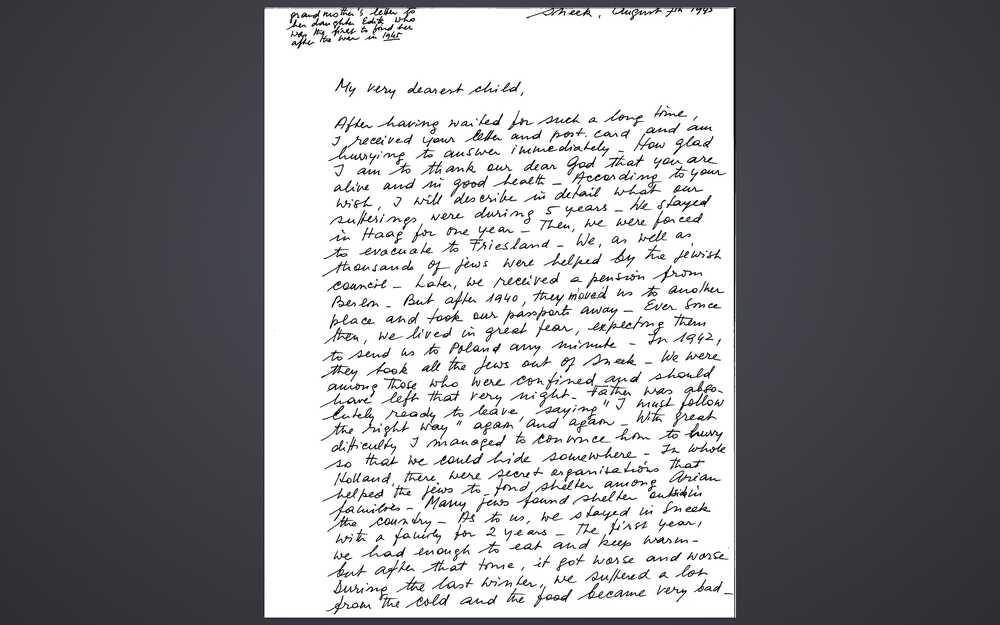 grandmother's letter to
her daughter Edith who
was the first to find her
after the war in 1945
Sneek, August 7th 1945
My very dearest child,
After having waited for such a long time,
I received your letter and post.card and am
hurrying to answer immediately - How glad
I am to thank our dear God that you are
alive and in good health - According to your
wish, I will describe in detail what our
sufferings were during 5 years - We stayed
in Haag for one year - Then, we were forced
to evacuate to Friesland - We, as well as
thousands of jews were helped by the jewish
council - Later, we received a pension from
Berlin - But after 1940, they moved us to another
place and took our passports away - Ever since
then, we lived in great fear, expecting them
to send us to Poland any minute - In 1942,
they took all the Jews out of Sneek - We were
among those who were confined and should
have left that very night - Father was abso-
lutely ready to leave, saying "I must follow
the right way" again and again - With great
difficulty I managed to convince him to hurry
so that we could hide somewhere - In whole
Holland, there were secret organisations that
helped the jews to find shelter among Arian
families - Many jews found shelter outside in
the country - As to us, we stayed in Sneek
with a family for 2 years - The first year,
we had enough to eat and keep warm -
but after that time, it got worse and worse
During the last winter, we suffered a lot
from the cold and the food became very bad -